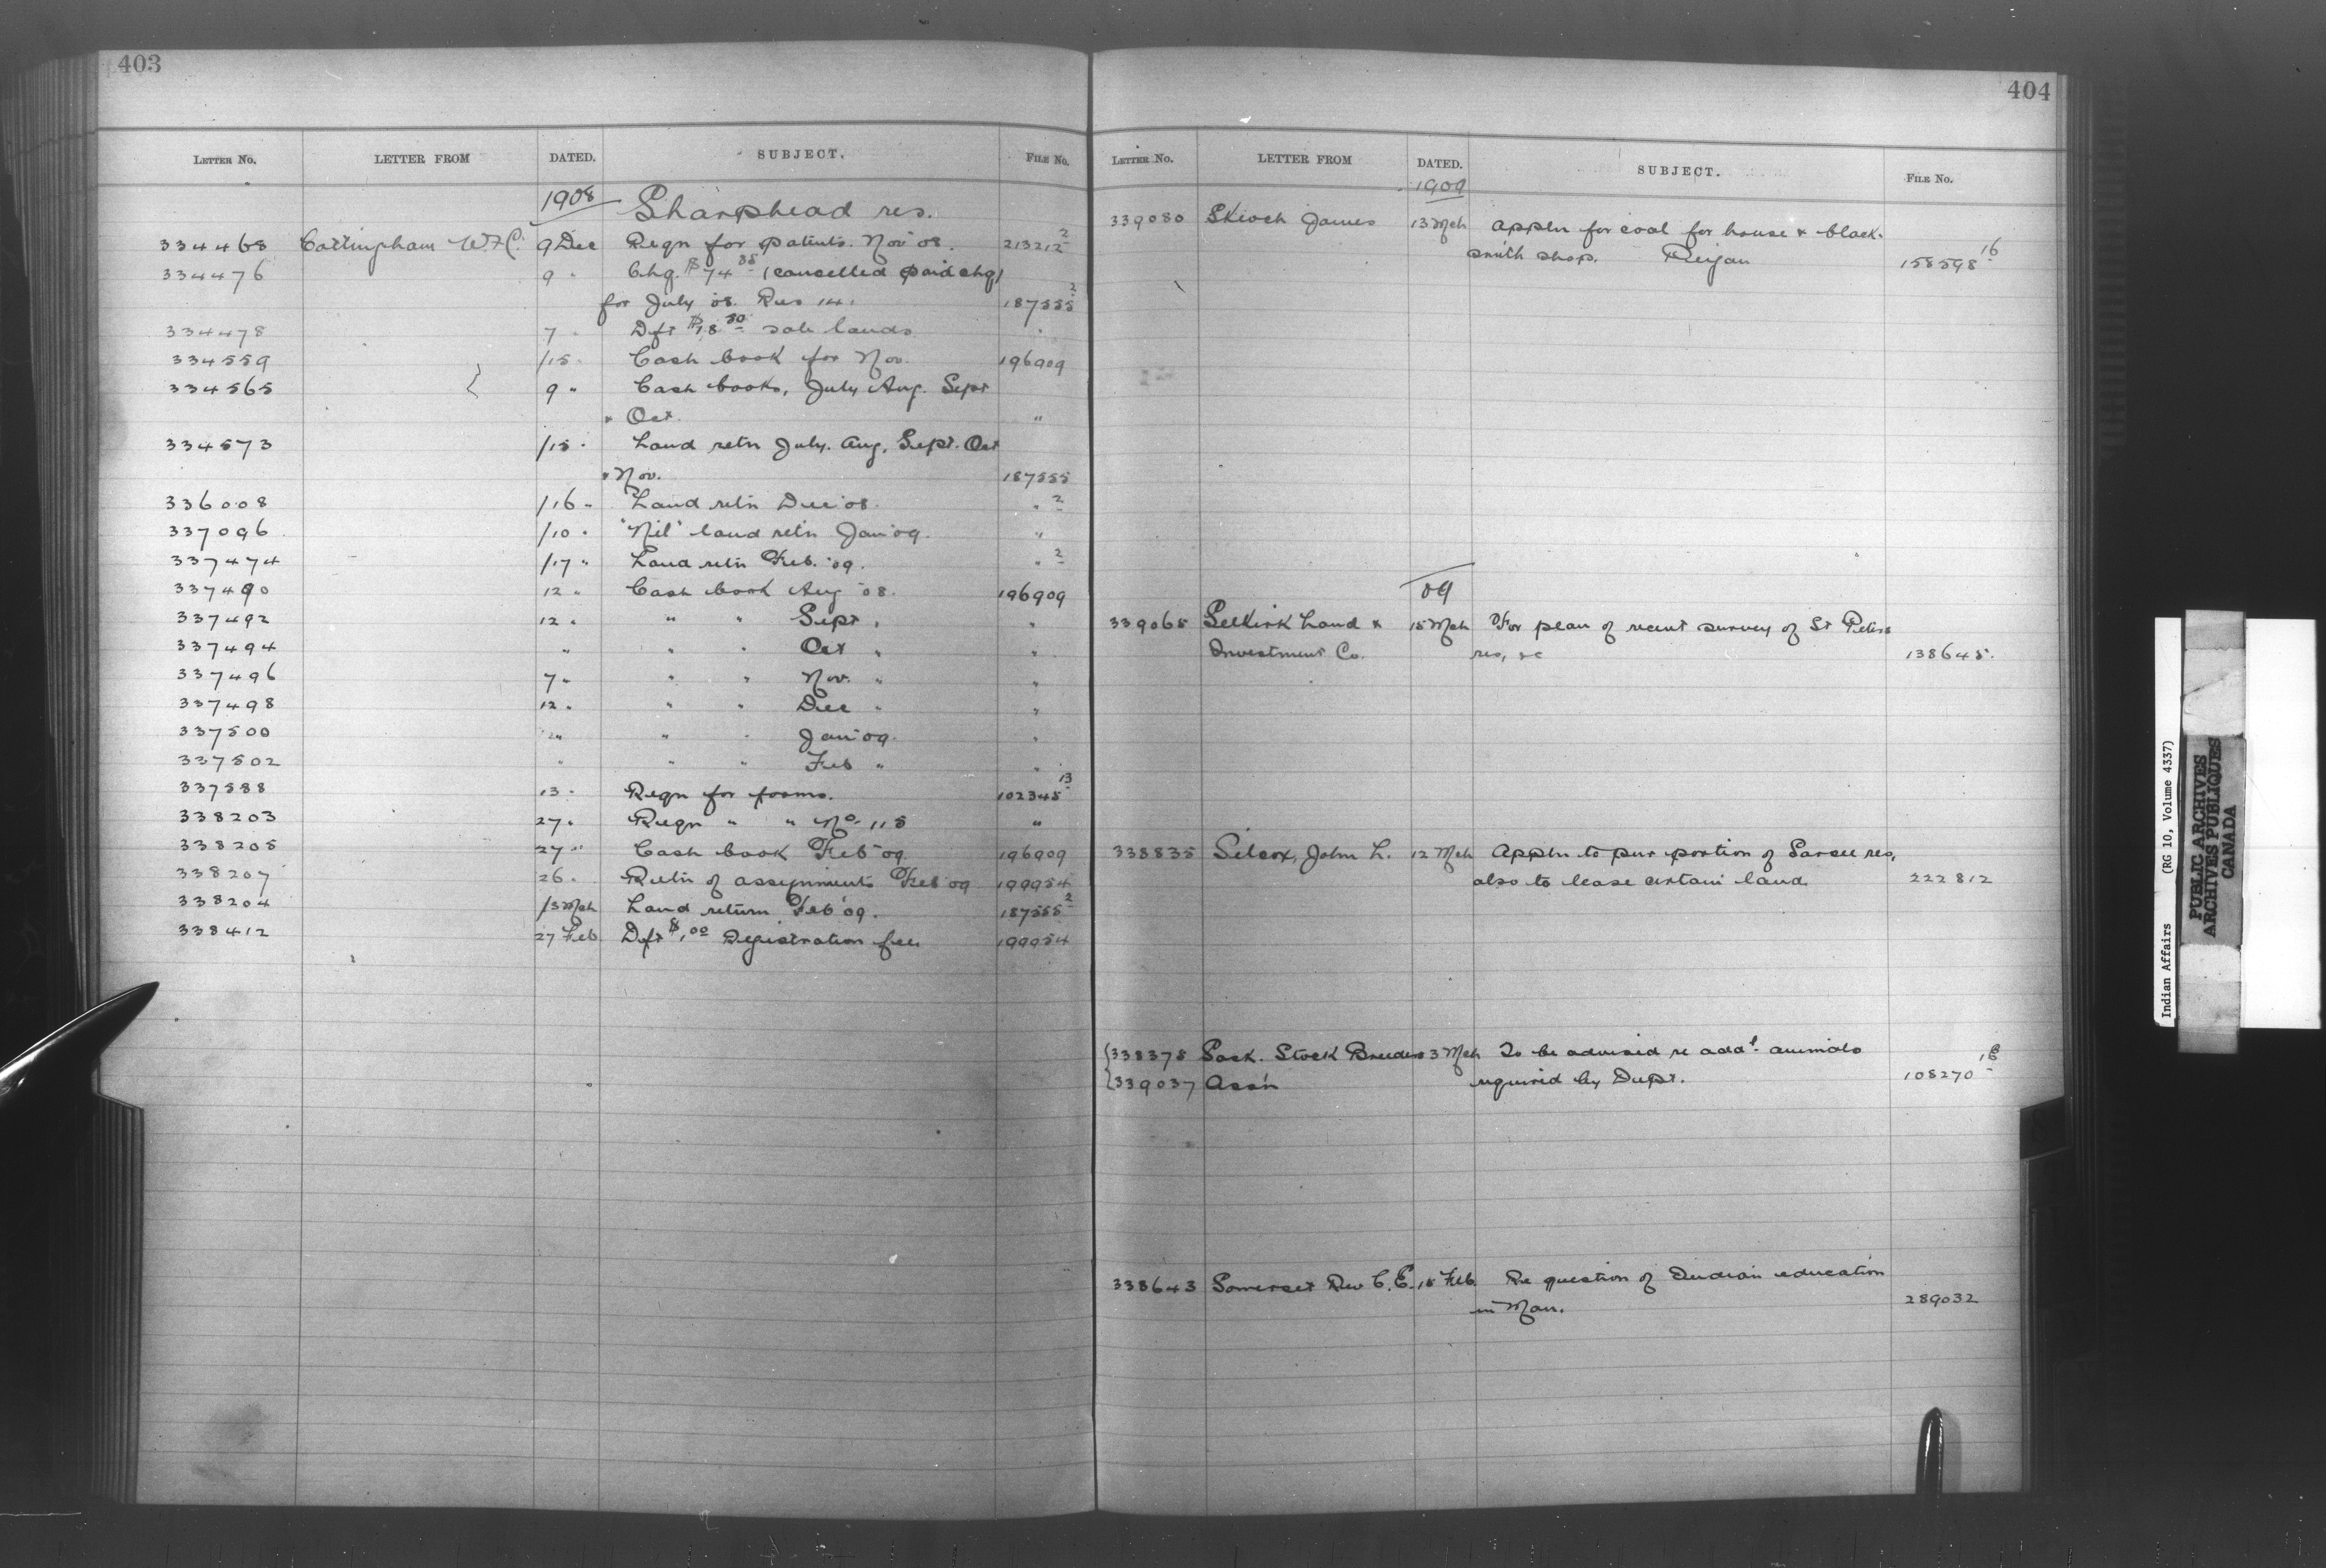 403
LETTER No. LETTER FROM DATED. SUBJECT. FILE No.
1908 Sharphead res.
334468 Cottingham W.F.C. 9 Dec Reqn for patents. Nov 08. 213212 2
334476 9 " Chq. $74 38 (cancelled paid chq)
for July 08. Res 14. 187555 2
334478 7 " Dft $18 30 sale lands "
334559 /15 " Cash book for Nov. 196909
334565 9 " Cash books, July Aug. Sept
" Oct. "
334573 /15 " Land retn July. Aug. Sept. Oct
" Nov. 187555
336008 /16 " Land retn Dec 08. " 2
337096 /10 " "Nil" land retn Jan 09. "
337474 /17 " Land retn Feb. 09. " 2
337490 12 " Cash book Aug 08. 196909
337492 12 " " " Sept " "
337494 " " " Oct " "
337496 7 " " " Nov. " "
337498 12 " " " Dec " "
337500 12 " " " Jan 09. "
337502 " " " Feb " "
337588 13 " Reqn for forms. 102345 13
338203 27 " Reqn " " No. 115 "
338205 27 " Cash book Feb 09 196909
338207 26 " Retn of assignments Feb 09 199954
338204 /3 Mch Land return Feb 09. 187555 2
338412 27 Feb Dft $1.00 Registration fees 199954
404
LETTER No. LETTER FROM DATED. SUBJECT. FILE No.
1909
339080 Skioch James 13 Mch Appln for coal for house & black-
smith shop. 158598 16
09
339065 Selkirk Land & 15 Mch For plan of recent survey of St Peters
Investment Co. res, &c 138645.
338835 Silcox, John L. 12 Mch Appln to pur portion of Sarcee res,
also to lease certain land 222812
338378 Sask. Stock Breeders 3 Mch To be advised re addl. animals
339037 Assn required by Dept. 108270 18
338643 Somerset Rev C.E. 15 Feb. Re question of Indian education
in Man. 289032
Indian Affairs (RG 10, Volume 4337)
PUBLIC ARCHIVES
ARCHIVES PUBLIQUES
CANADA